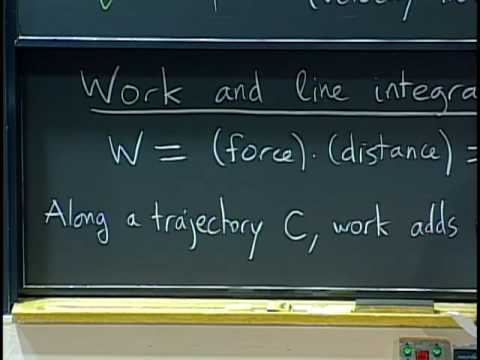 (velocity
Work and line integra
W = (force) · (distance) =
Along a trajectory C, work adds